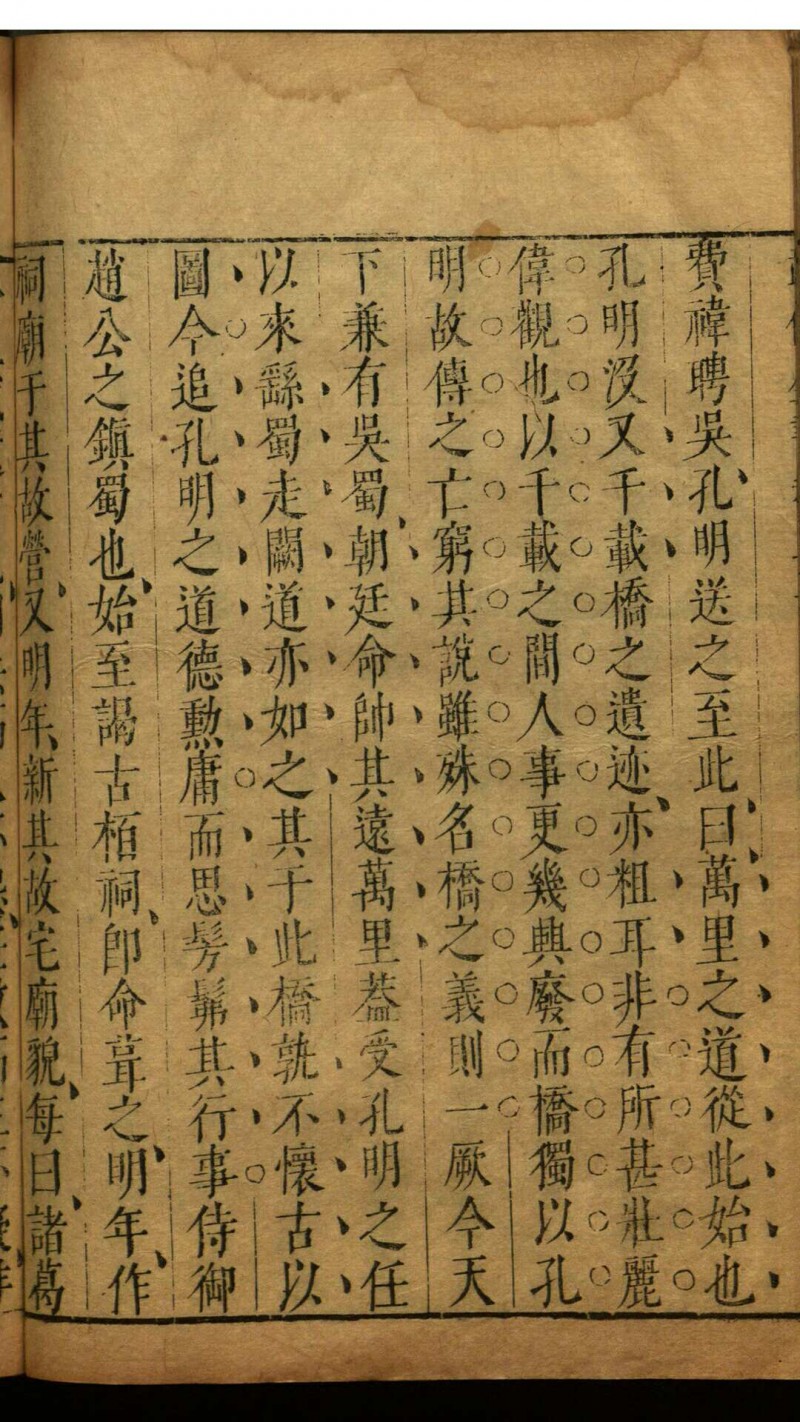 費禕聘吳孔明送之至此曰萬里之道從此始也
孔明沒又千載橋之遺迹亦粗耳非有所甚壯麗
偉觀也以千載之間人事更幾興廢而橋獨以孔
明故傳之亡窮其說雖殊名橋之義則一厥今天
下兼有吳蜀朝廷命帥其遠萬里葢受孔明之任
以來繇蜀走闕道亦如之其于此橋孰不懷古以
圖今追孔明之道德勲庸而思髣髴其行事侍御
趙公之鎭蜀也始至謁古栢祠卽命葺之明年作
祠廟于其故營又明年新其故宅廟貌每曰諸葛